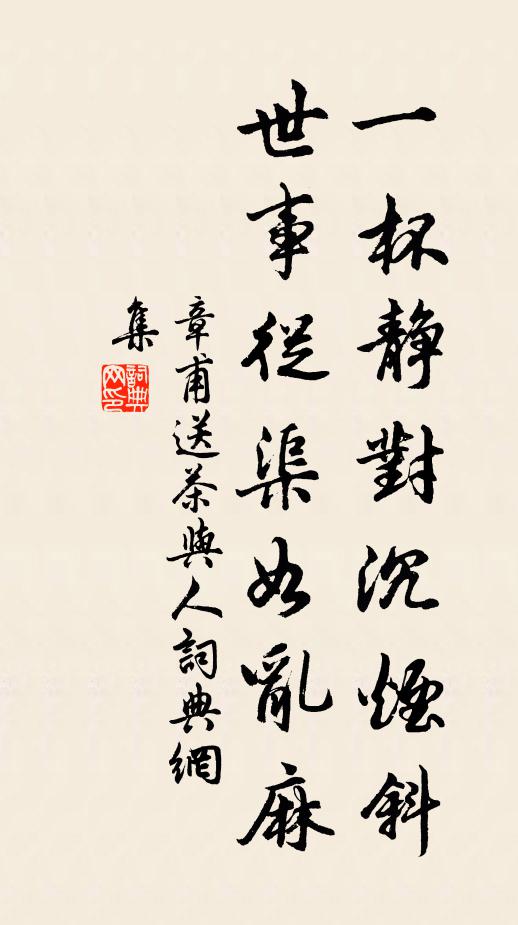 一杯静對沉煙斜
世事從渠如亂麻
章甫送茶與人詞典網
集
詞典
网印